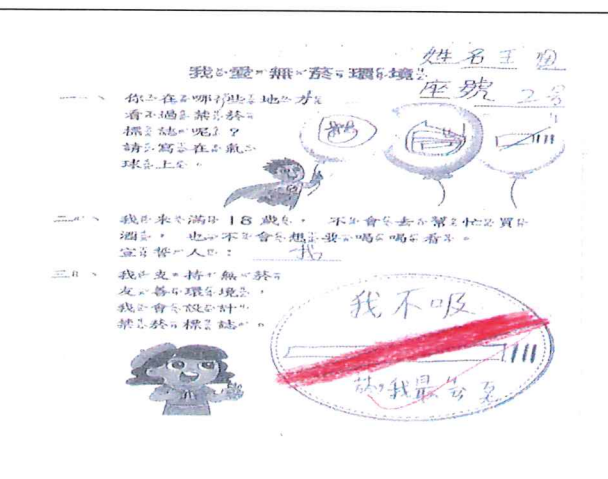 姓名王
我愛無菸環境
座號 2号
一、 你在哪些地方
看過禁菸
標誌呢？
請寫在氣
球上。
二、 我未滿18歲， 不會去幫忙買
酒， 也不會想要喝喝看。
宣誓人： 我
三、 我支持無菸
友善環境，
我會設計
禁菸標誌。
我不吸
菸，我最